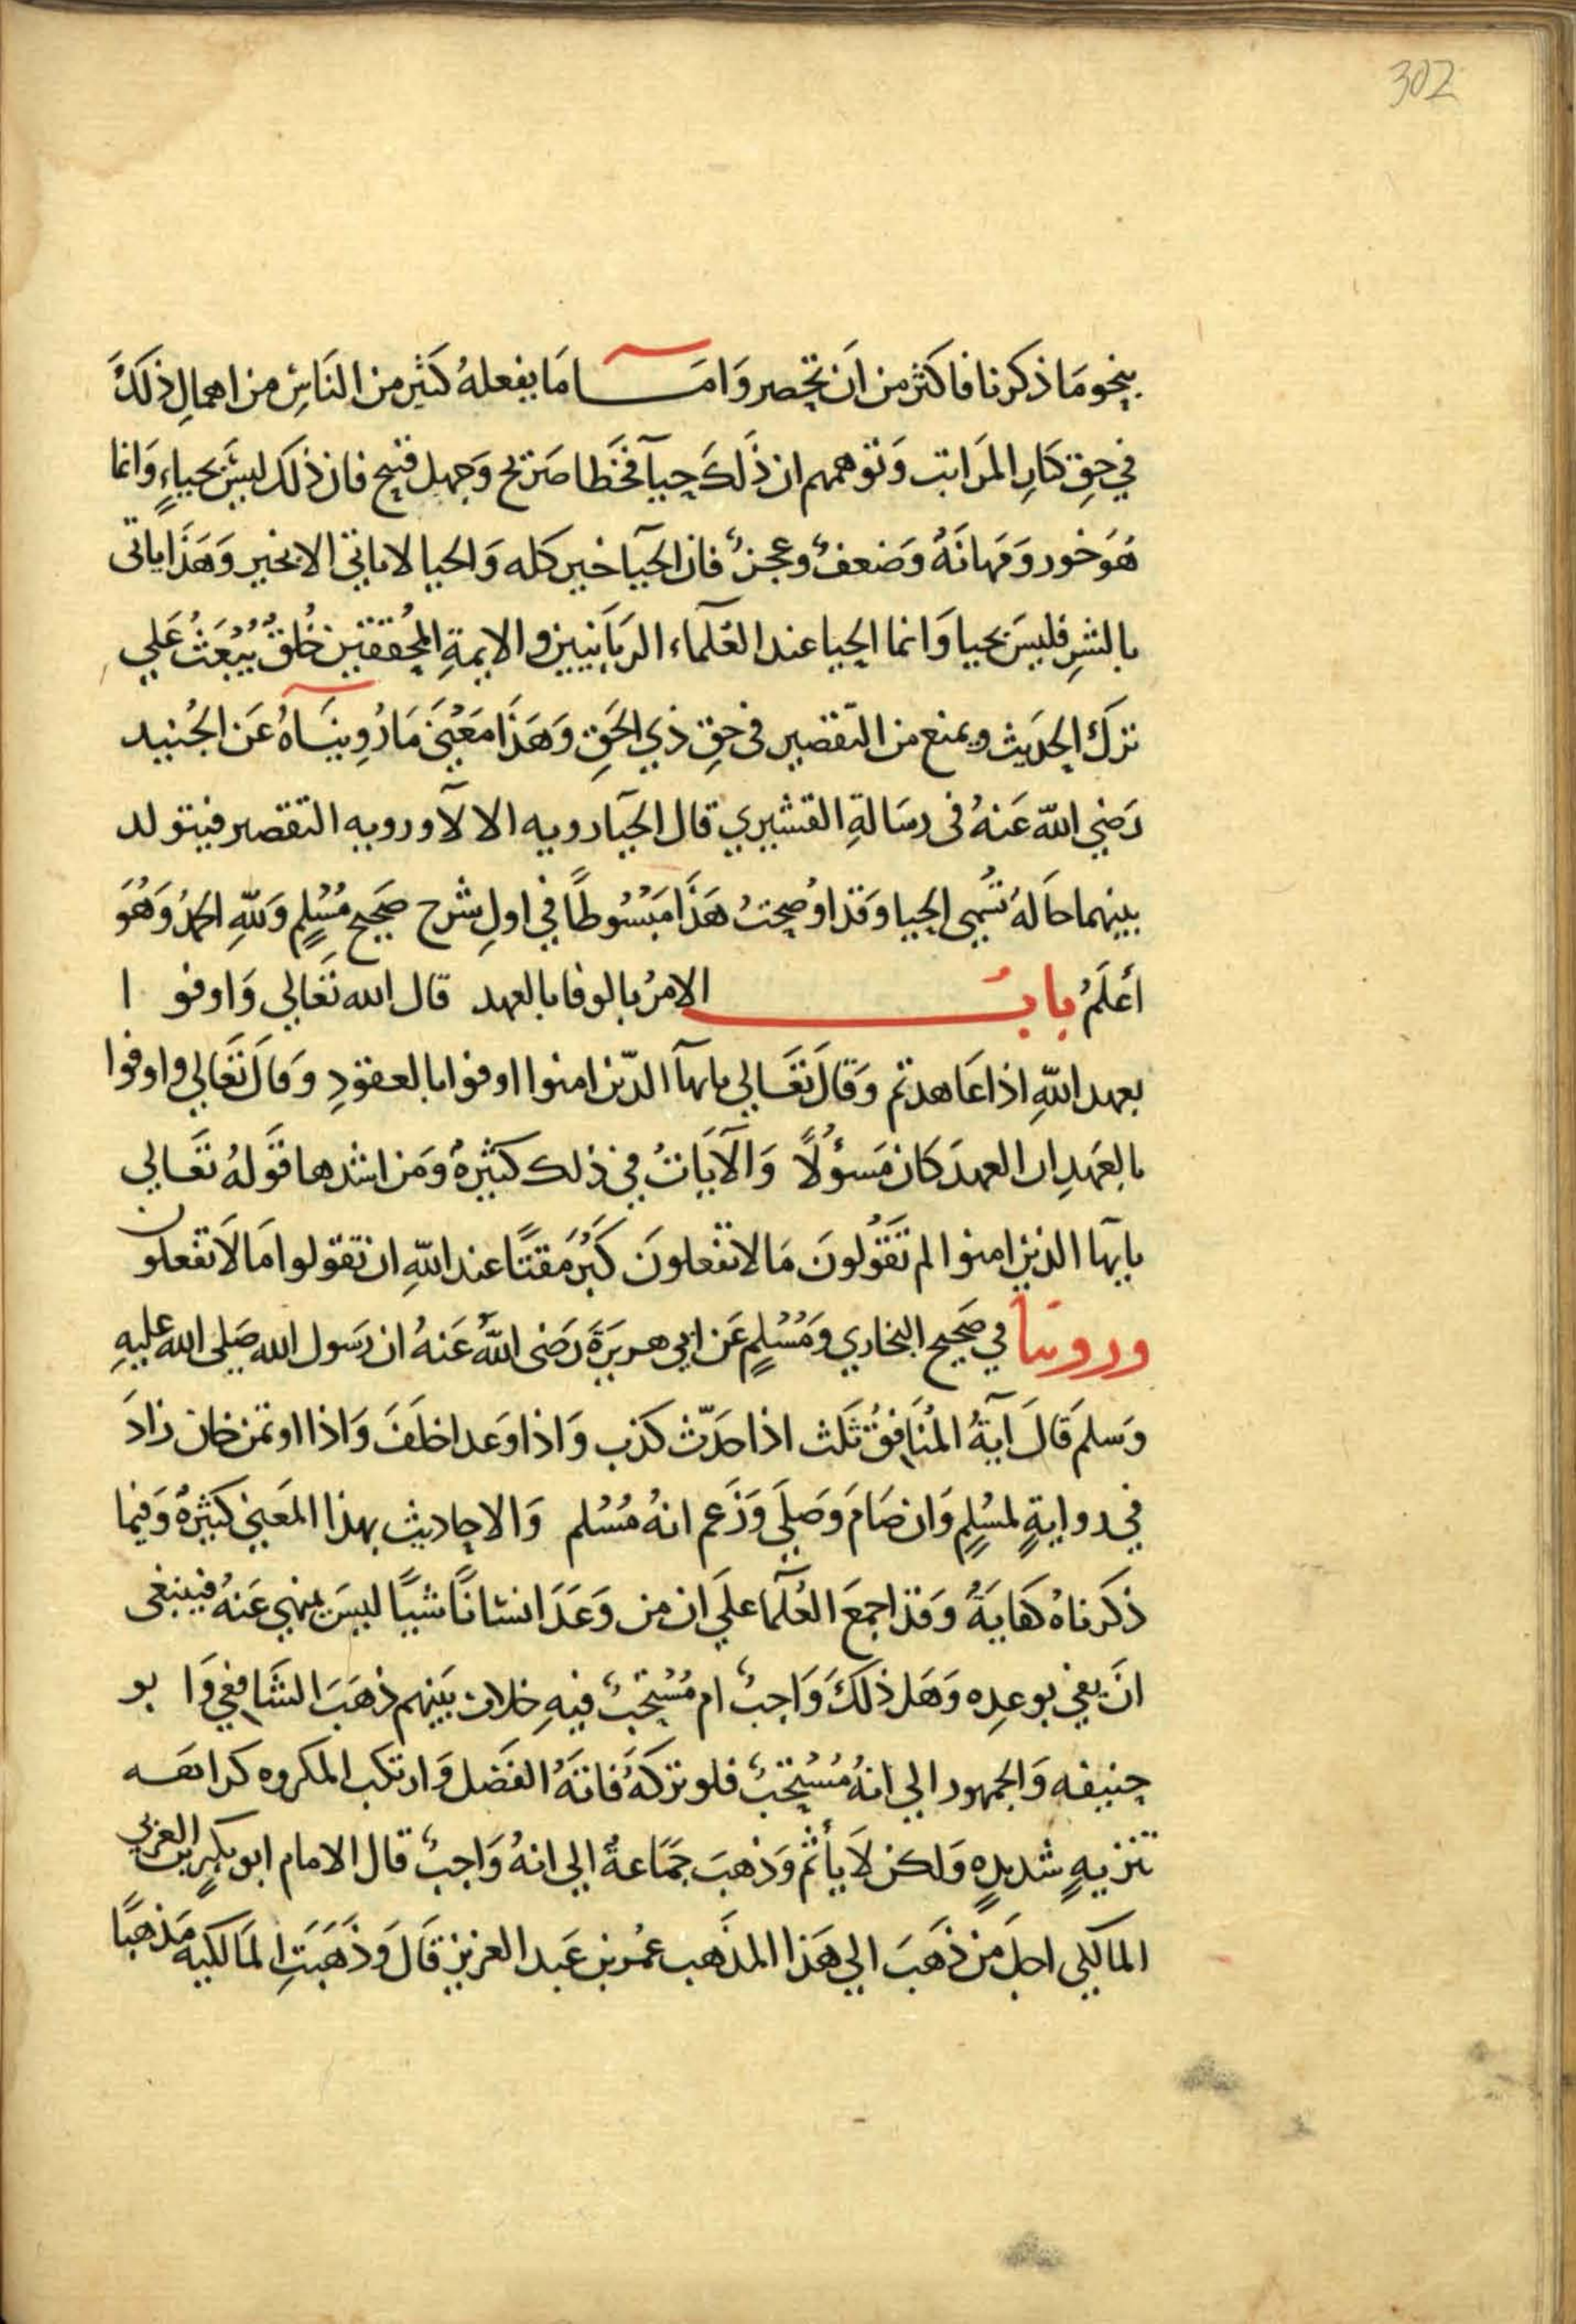 302
بنحو مَا ذكرنا فاكثر من اَن تحصر وَامَّــا مَا يفعلهُ كثير من النَاسِ من اهمالِ ذلكَ
في حقِ كبارِ المرَاتب وَتوهمهم ان ذَلكَ حيآ فخَطا صَريح وَجهل قبيح فان ذلكَ ليسَ بحياءٍ وَانما
هُوَ خور وَمهانَهٌ وَضعفٌ وعجزٌ فان الحيآ خير كله وَالحيا لا ياتي الا بخير وَهَذَا ياتي
بالشرِ فليسَ بحيا وَانما الحيا عند العُلمآء الربَانيين والايمةِ المحُققين خُلقٌ يُبْعَثُ عَلي
تركِ الحدَيث ويمنع من التّقصير فى حقِ ذي الحَقِ وَهَذَا مَعْنَى مَا رُوِينَاهُ عَن الجُنيد
رَضي اللّه عَنهُ فى رسَالةِ القشيري قال الحيآ رويه الا لآ ورويه التقصير فيتولد
بينهما حَالهُ تسُمي الحيا وَقد اوُضحتُ هَذَا مَبسُوطاً في اولِ شرح صَحيح مُسْلمٍ وَللّهِ الحمدُ وَهُوَ
أعلَمُ بابُ الامرُ بالوفا بالعهد قال الله تَعَالي وَاوفوا
بعهد اللّهِ اذا عَاهدتم وَقالَ تعَالي يايهآ الذّين امنوا اوفوا بالعقودِ وَقالَ تعَالي وَاوفوا
بالعَهدِ ان العهدَ كانَ مَسؤُلًا وَالآيَاتُ في ذلك كثيرهٌ وَمن اشدها قَولهُ تعَالي
يايها الذين امنوا لم تَقُولونَ مَا لا تفعلونَ كَبُرَ مَقتًا عند اللّهِ ان تقولوا مَا لاَ تفعلون
وروينا في صَحيح البخاري وَمُسْلمٍ عَن ابي هريرَةَ رَضى اللّهُ عَنهُ ان رَسول الله صَلى الله عليهِ
وَسلمَ قالَ آيَةُ المُنَافقُ ثَلث اذا حَدّث كذب وَاذا وَعد اخلَفَ وَاذا اوتمن خان زادَ
في روايةٍ لمسُلمٍ وَان صَامَ وَصَلَى وَزَعم انهُ مُسْلم وَالاحاديث بهذا المعَنى كثيرهٌ وَفيما
ذكَرناهُ كفايَةٌ وَقد اجمعَ العُلمآ علَي ان من وَعَدَ انسانًا شيًا ليسَ بمنهي عَنهُ فينبغى
انَ يفي بوعدِه وَهَل ذلكَ وَاجبٌ ام مُسْتحَبٌ فيهِ خلاف بَينهم ذهَبَ الشَافعي وَابو
حنيفه وَالجمهور الي انهُ مُسْتحَبٌ فلو تركَهُ فَاتَهُ الفَضل وَارتكب المكروه كراهه
تنزيهٍ شديدهٍ وَلكن لاَ يأثم وَذهبَ جَمَاعةٌ الي انهُ وَاجبٌ قال الامام ابو بكرٍ بن العربي
المالكي اجلَ من ذهَبَ الي هَذا المذَهب عمُر بن عَبد العزيز قَالَ وَذَهَبَتِ المَالكيهَ مَذهبًا